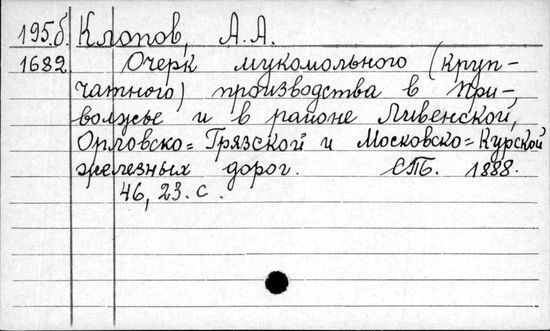 195.б. Клопов, А.А.
1682 Очерк мукомольного (круп-
чатного) производства в При-
волжье и в районе Ливенской,
Орловско=Грязской и Московско=Курской
железных дорог. СПб. 1888.
46, 23. с.